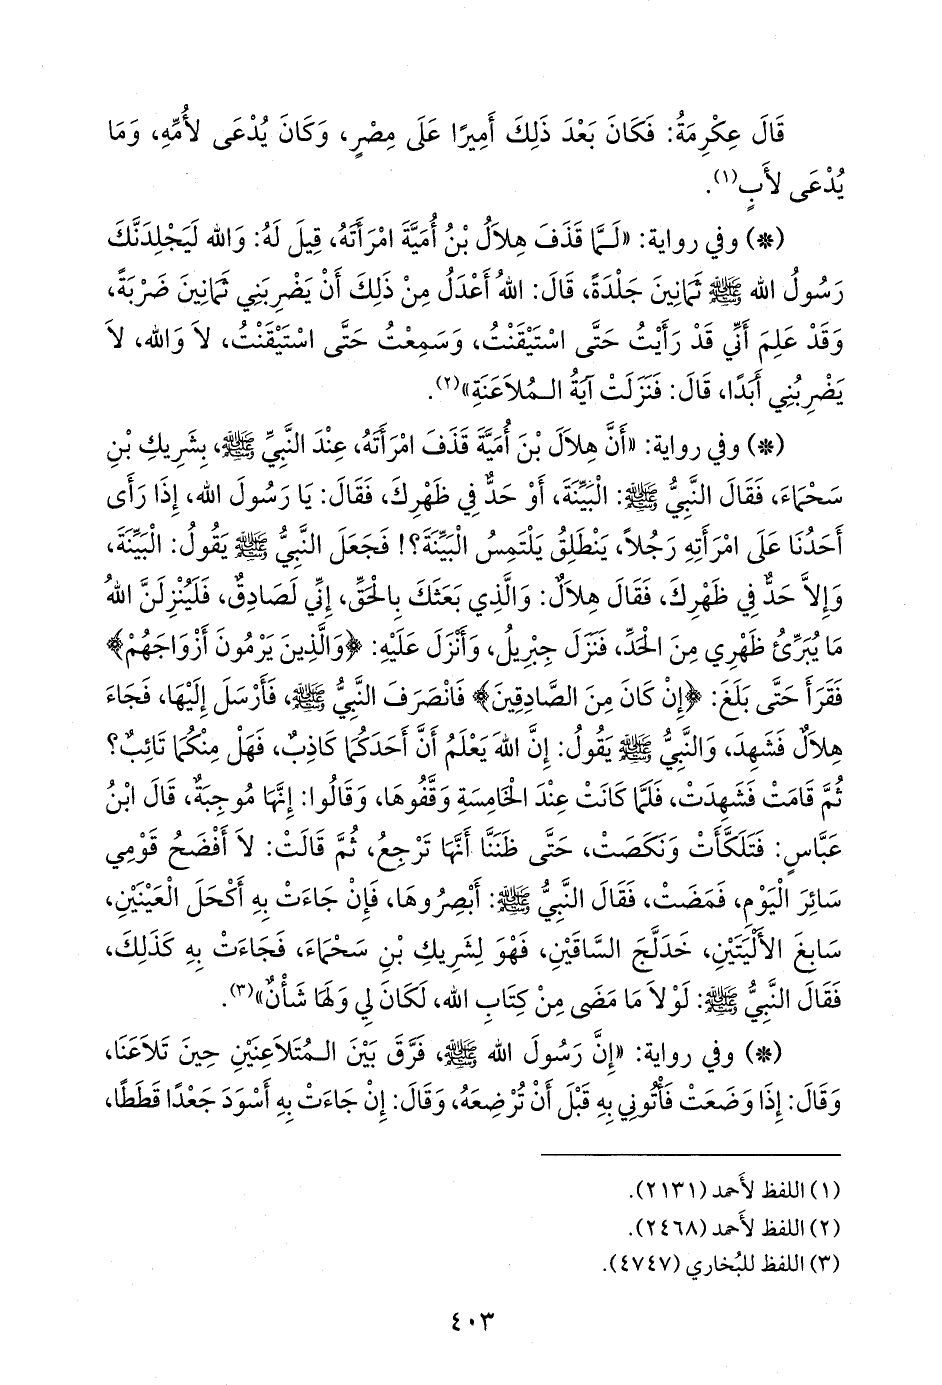 قَالَ عِكْرِمَةُ: فَكَانَ بَعْدَ ذَلِكَ أَمِيرًا عَلَى مِصْرٍ، وَكَانَ يُدْعَى لأُمِّهِ، وَمَا
يُدْعَى لأَبٍ»(١).
(*) وفي رواية: «لَـمَّا قَذَفَ هِلاَلُ بْنُ أُمَيَّةَ امْرَأَتَهُ، قِيلَ لَهُ: وَالله لَيَجْلِدَنَّكَ
رَسُولُ الله ﷺ ثَمَانِينَ جَلْدَةً، قَالَ: اللهُ أَعْدَلُ مِنْ ذَلِكَ أَنْ يَضْرِبَنِي ثَمَانِينَ ضَرْبَةً،
وَقَدْ عَلِمَ أَنِّي قَدْ رَأَيْتُ حَتَّى اسْتَيْقَنْتُ، وَسَمِعْتُ حَتَّى اسْتَيْقَنْتُ، لاَ وَالله، لاَ
يَضْرِبُنِي أَبَدًا، قَالَ: فَنَزَلَتْ آيَةُ الـمُلاَعَنَةِ»(٢).
(*) وفي رواية: «أَنَّ هِلاَلَ بْنَ أُمَيَّةَ قَذَفَ امْرَأَتَهُ، عِنْدَ النَّبِيِّ ﷺ، بِشَرِيكِ بْنِ
سَحْمَاءَ، فَقَالَ النَّبِيُّ ﷺ: الْبَيِّنَةَ، أَوْ حَدٌّ فِي ظَهْرِكَ، فَقَالَ: يَا رَسُولَ الله، إِذَا رَأَى
أَحَدُنَا عَلَى امْرَأَتِهِ رَجُلاً، يَنْطَلِقُ يَلْتَمِسُ الْبَيِّنَةَ؟! فَجَعَلَ النَّبِيُّ ﷺ يَقُولُ: الْبَيِّنَةَ،
وَإِلاَّ حَدٌّ فِي ظَهْرِكَ، فَقَالَ هِلاَلٌ: وَالَّذِي بَعَثَكَ بِالْحَقِّ، إِنِّي لَصَادِقٌ، فَلَيُنْزِلَنَّ اللهُ
مَا يُبَرِّئُ ظَهْرِي مِنَ الْحَدِّ، فَنَزَلَ جِبْرِيلُ، وَأَنْزَلَ عَلَيْهِ: ﴿وَالَّذِينَ يَرْمُونَ أَزْوَاجَهُمْ﴾
فَقَرَأَ حَتَّى بَلَغَ: ﴿إِنْ كَانَ مِنَ الصَّادِقِينَ﴾ فَانْصَرَفَ النَّبِيُّ ﷺ، فَأَرْسَلَ إِلَيْهَا، فَجَاءَ
هِلاَلٌ فَشَهِدَ، وَالنَّبِيُّ ﷺ يَقُولُ: إِنَّ اللهَ يَعْلَمُ أَنَّ أَحَدَكُمَا كَاذِبٌ، فَهَلْ مِنْكُمَا تَائِبٌ؟
ثُمَّ قَامَتْ فَشَهِدَتْ، فَلَمَّا كَانَتْ عِنْدَ الْخَامِسَةِ وَقَّفُوهَا، وَقَالُوا: إِنَّهَا مُوجِبَةٌ، قَالَ ابْنُ
عَبَّاسٍ: فَتَلَكَّأَتْ وَنَكَصَتْ، حَتَّى ظَنَنَّا أَنَّهَا تَرْجِعُ، ثُمَّ قَالَتْ: لاَ أَفْضَحُ قَوْمِي
سَائِرَ الْيَوْمِ، فَمَضَتْ، فَقَالَ النَّبِيُّ ﷺ: أَبْصِرُوهَا، فَإِنْ جَاءَتْ بِهِ أَكْحَلَ الْعَيْنَيْنِ،
سَابِغَ الأَلْيَتَيْنِ، خَدَلَّجَ السَّاقَيْنِ، فَهْوَ لِشَرِيكِ بْنِ سَحْمَاءَ، فَجَاءَتْ بِهِ كَذَلِكَ،
فَقَالَ النَّبِيُّ ﷺ: لَوْلاَ مَا مَضَى مِنْ كِتَابِ الله، لَكَانَ لِي وَلَهَا شَأْنٌ»(٣).
(*) وفي رواية: «إِنَّ رَسُولَ الله ﷺ، فَرَّقَ بَيْنَ الـمُتَلاَعِنَيْنِ حِينَ تَلاَعَنَا،
وَقَالَ: إِذَا وَضَعَتْ فَأْتُونِي بِهِ قَبْلَ أَنْ تُرْضِعَهُ، وَقَالَ: إِنْ جَاءَتْ بِهِ أَسْوَدَ جَعْدًا قَطَطًا،
(١) اللفظ لأحمد (٢١٣١).
(٢) اللفظ لأحمد (٢٤٦٨).
(٣) اللفظ للبُخاري (٤٧٤٧).
٤٠٣